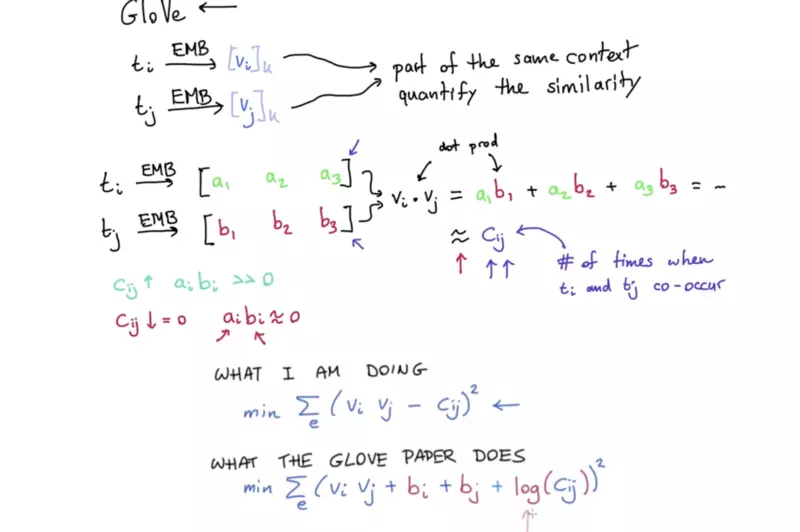 GloVe ←
tᵢ EMB→ [vᵢ]ₖ
part of the same context
tⱼ EMB→ [vⱼ]ₖ
quantify the similarity
dot prod
tᵢ EMB→ [a₁ a₂ a₃]
vᵢ · vⱼ = a₁b₁ + a₂b₂ + a₃b₃ = ~
tⱼ EMB→ [b₁ b₂ b₃]
≈ Cᵢⱼ
# of times when
tᵢ and tⱼ co-occur
Cᵢⱼ ↑ aᵢbᵢ >> 0
Cᵢⱼ ↓ = 0 aᵢbᵢ ≈ 0
WHAT I AM DOING
min Σₑ (vᵢ vⱼ − Cᵢⱼ)² ←
WHAT THE GLOVE PAPER DOES
min Σₑ (vᵢ vⱼ + bᵢ + bⱼ + log(Cᵢⱼ))²